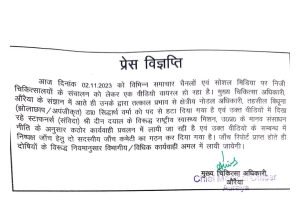 प्रेस विज्ञप्ति
आज दिनांक 02.11.2023 को विभिन्न समाचार चैनलों एवं सोशल मिडिया पर निजी
चिकित्सालयों के संचालन को लेकर एक वीडियो वायरल हो रहा है। मुख्य चिकित्सा अधिकारी,
औरैया के संज्ञान में आते ही उनके द्वारा तत्काल प्रभाव से क्षेत्रीय नोडल अधिकारी, तहसील बिधूना
(झोलाछाप/अपंजीकृत) डा० सिद्धार्थ वर्मा को पद से हटा दिया गया है एवं उक्त वीडियो में दिख
रहे स्टाफनर्स (संविदा) श्री दीन दयाल के विरूद्ध राष्ट्रीय स्वास्थ्य मिशन, उ०प्र० के मानव संसाधन
नीति के अनुसार कठोर कार्यवाही प्रचलन में लायी जा रही है एवं उक्त वीडियो के सम्बन्ध में
निष्पक्ष जाँच हेतु दो सदस्यीय जाँच कमेटी का गठन कर दिया गया है। जाँच रिपोर्ट प्राप्त होते ही
दोषियों के विरूद्ध नियमानुसार विभागीय/विधिक कार्यवाही अमल में लायी जायेगी।
मुख्य चिकित्सा अधिकारी,
औरैया
Chief Medical Officer
Auraiya